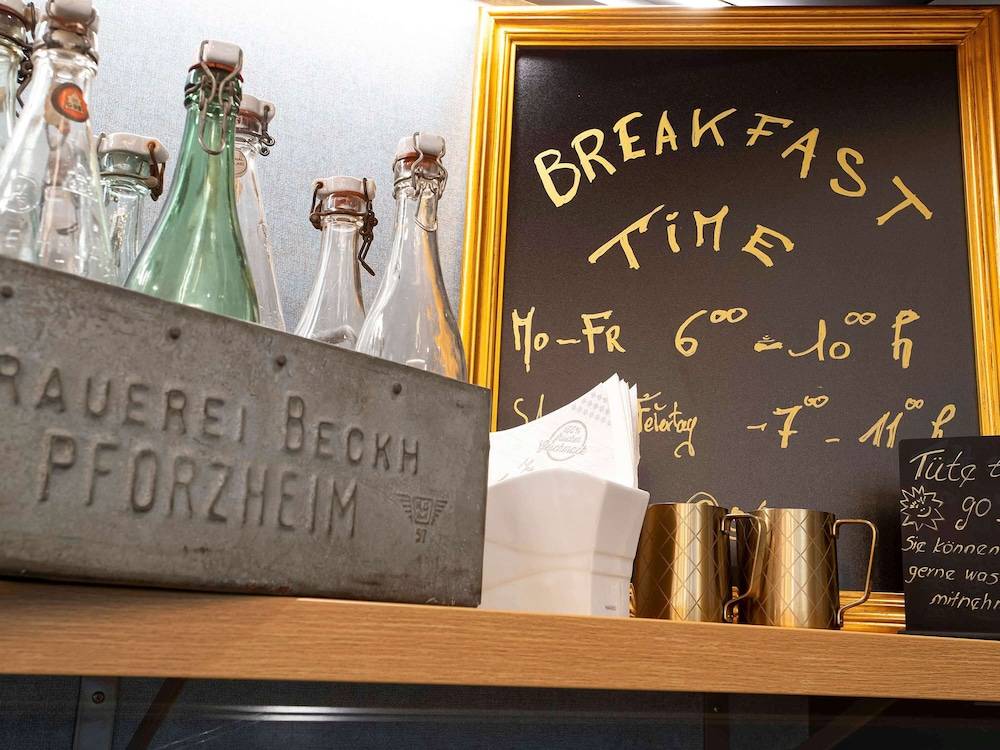 BREAKFAST
TiME
Mo-FR 6⁰⁰ - 10⁰⁰ h
Feiertag -7⁰⁰ - 11⁰⁰ h
RAUEREI BECKH
PFORZHEIM
57
100%
Geschmack
Tüte t
go
Sie können
gerne was
mitneh